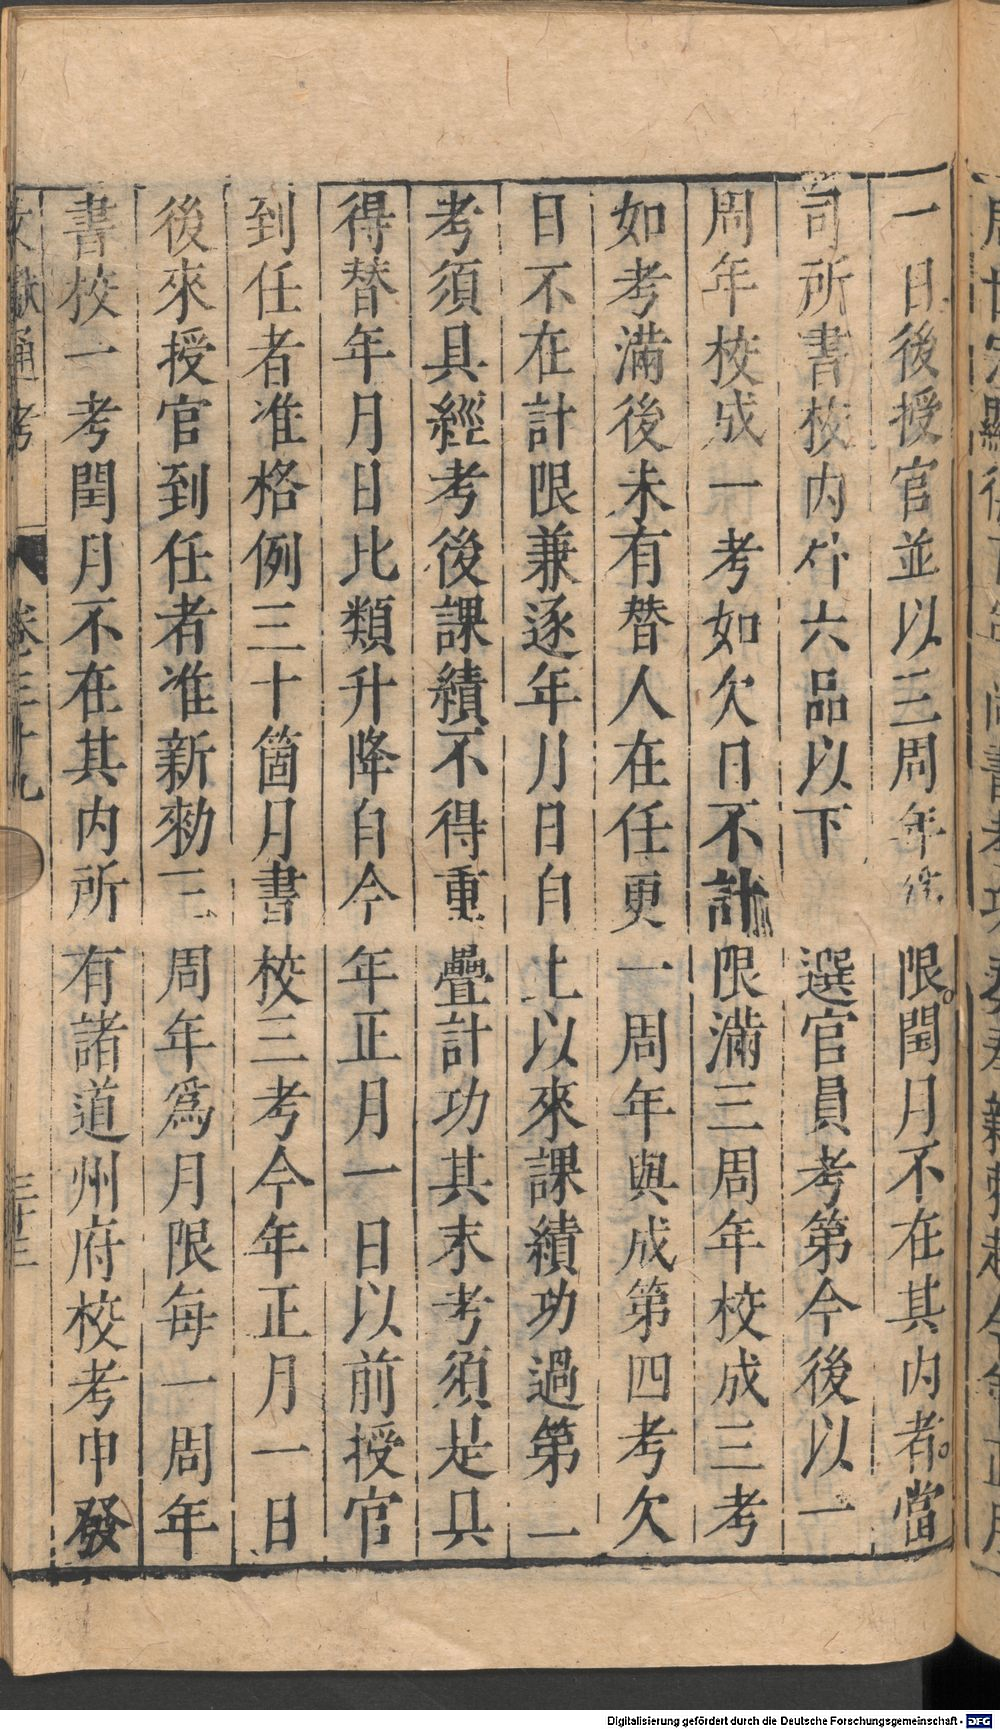 一日後授官並以三周年爲限閏月不在其内者當
司所書校内外六品以下選官員考第今後以一
周年校成一考如欠日不計限滿三周年校成三考
如考滿後未有替人在任更一周年與成第四考欠
日不在計限兼逐年月日自上以來課績功過第一
考須具經考後課績不得重疊計功其末考須是具
得替年月日比類升降自今年正月一日以前授官
到任者准格例三十箇月書校三考今年正月一日
後來授官到任者准新勑三周年爲月限每一周年
書校一考閏月不在其内所有諸道州府校考申發
文獻通考 卷三十九
Digitalisierung gefördert durch die Deutsche Forschungsgemeinschaft - DFG